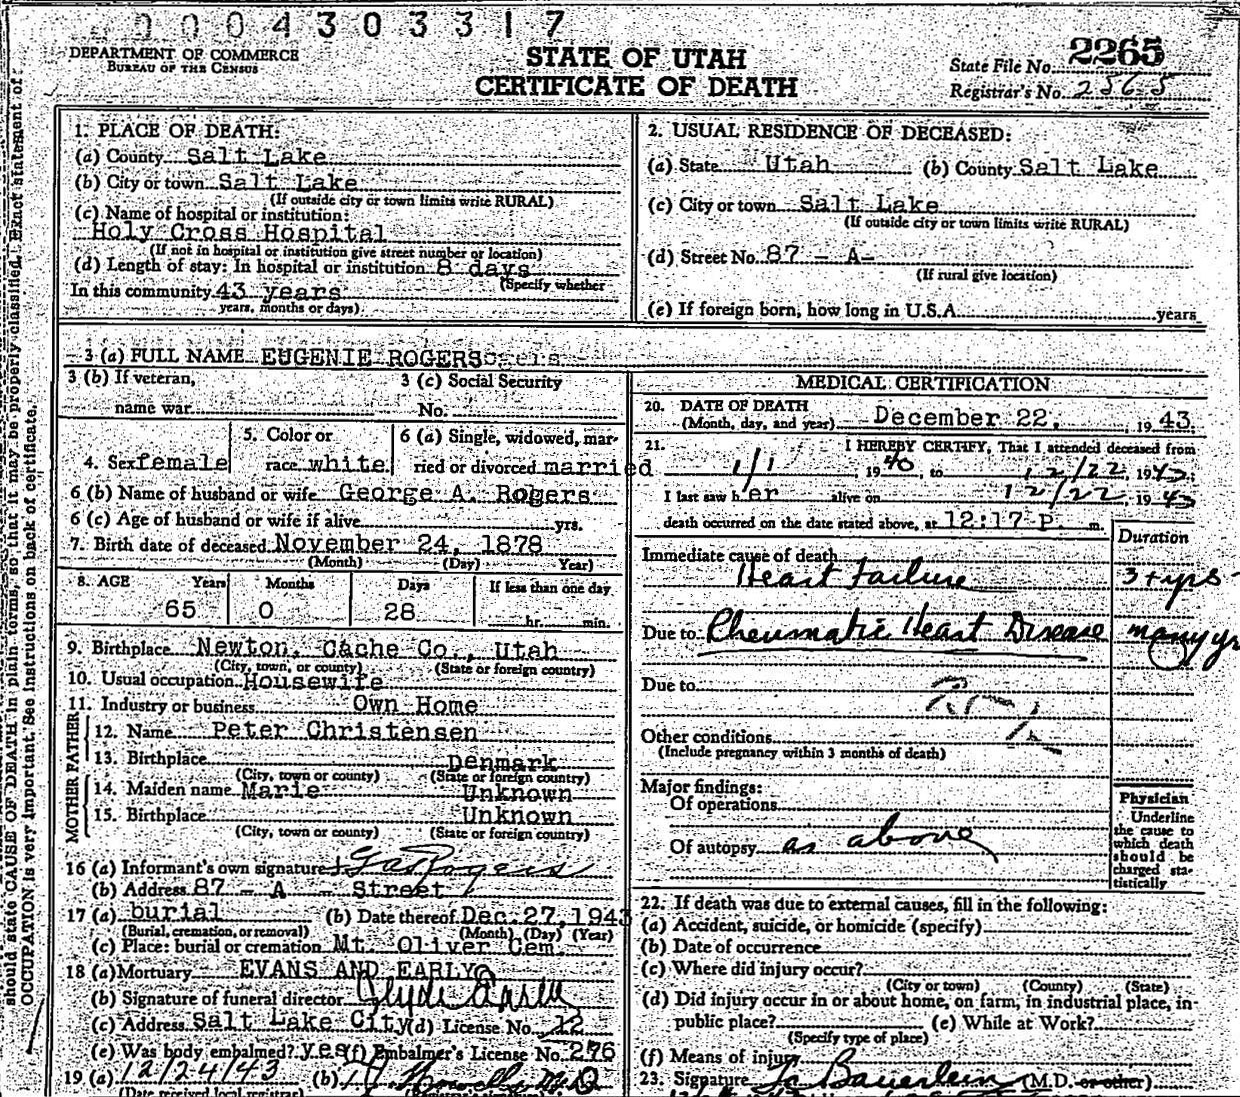 0004303317
DEPARTMENT OF COMMERCE
BUREAU OF THE CENSUS
STATE OF UTAH
CERTIFICATE OF DEATH
State File No. 2265
Registrar's No. 2565
should state CAUSE OF DEATH in plain terms, so that it may be properly classified. Exact statement of
OCCUPATION is very important. See instructions on back of certificate.
1. PLACE OF DEATH:
(a) County Salt Lake
(b) City or town Salt Lake
(If outside city or town limits write RURAL)
(c) Name of hospital or institution:
Holy Cross Hospital
(If not in hospital or institution give street number or location)
(d) Length of stay: In hospital or institution 8 days
(Specify whether
In this community 43 years
years, months or days)
2. USUAL RESIDENCE OF DECEASED:
(a) State Utah (b) County Salt Lake
(c) City or town Salt Lake
(If outside city or town limits write RURAL)
(d) Street No. 87 - A-
(If rural give location)
(e) If foreign born, how long in U.S.A. years
3 (a) FULL NAME EUGENIE ROGERS
3 (b) If veteran,
name war
3 (c) Social Security
No.
4. Sex female
5. Color or
race white
6 (a) Single, widowed, mar-
ried or divorced married
6 (b) Name of husband or wife George A. Rogers
6 (c) Age of husband or wife if alive yrs.
7. Birth date of deceased November 24, 1878
(Month) (Day) Year)
8. AGE Years Months Days If less than one day
65 0 28 hr. min.
9. Birthplace Newton, Cache Co., Utah
(City, town, or county) (State or foreign country)
10. Usual occupation Housewife
11. Industry or business Own Home
MOTHER FATHER
12. Name Peter Christensen
13. Birthplace Denmark
(City, town or county) (State or foreign country)
14. Maiden name Marie Unknown
15. Birthplace Unknown
(City, town or county) (State or foreign country)
16 (a) Informant's own signature Rogers
(b) Address 87 - A - Street
17 (a) burial (b) Date thereof Dec. 27, 1943
(Burial, cremation, or removal) (Month) (Day) (Year)
(c) Place: burial or cremation Mt. Oliver Cem.
18 (a) Mortuary EVANS AND EARLY
(b) Signature of funeral director Clyde Early
(c) Address Salt Lake City (d) License No. 12
(e) Was body embalmed? yes (f) Embalmer's License No. 276
19 (a) 12/24/43 (b) M.D.
(Date received local registrar)
MEDICAL CERTIFICATION
20. DATE OF DEATH
(Month, day, and year) December 22, 1943
21. I HEREBY CERTIFY, That I attended deceased from
1/1, 1940, to 12/22, 1943;
I last saw her alive on 12/22, 1943
death occurred on the date stated above, at 12:17 P. m.
Duration
Immediate cause of death
Heart Failure 3+yrs
Due to Rheumatic Heart Disease many yr
Due to
Other conditions
(Include pregnancy within 3 months of death)
Major findings:
Of operations
Of autopsy as above
Physician
Underline
the cause to
which death
should be
charged sta-
tistically
22. If death was due to external causes, fill in the following:
(a) Accident, suicide, or homicide (specify)
(b) Date of occurrence
(c) Where did injury occur?
(City or town) (County) (State)
(d) Did injury occur in or about home, on farm, in industrial place, in-
public place? (e) While at Work?
(Specify type of place)
(f) Means of injury
23. Signature Bauerlein (M.D. or other)